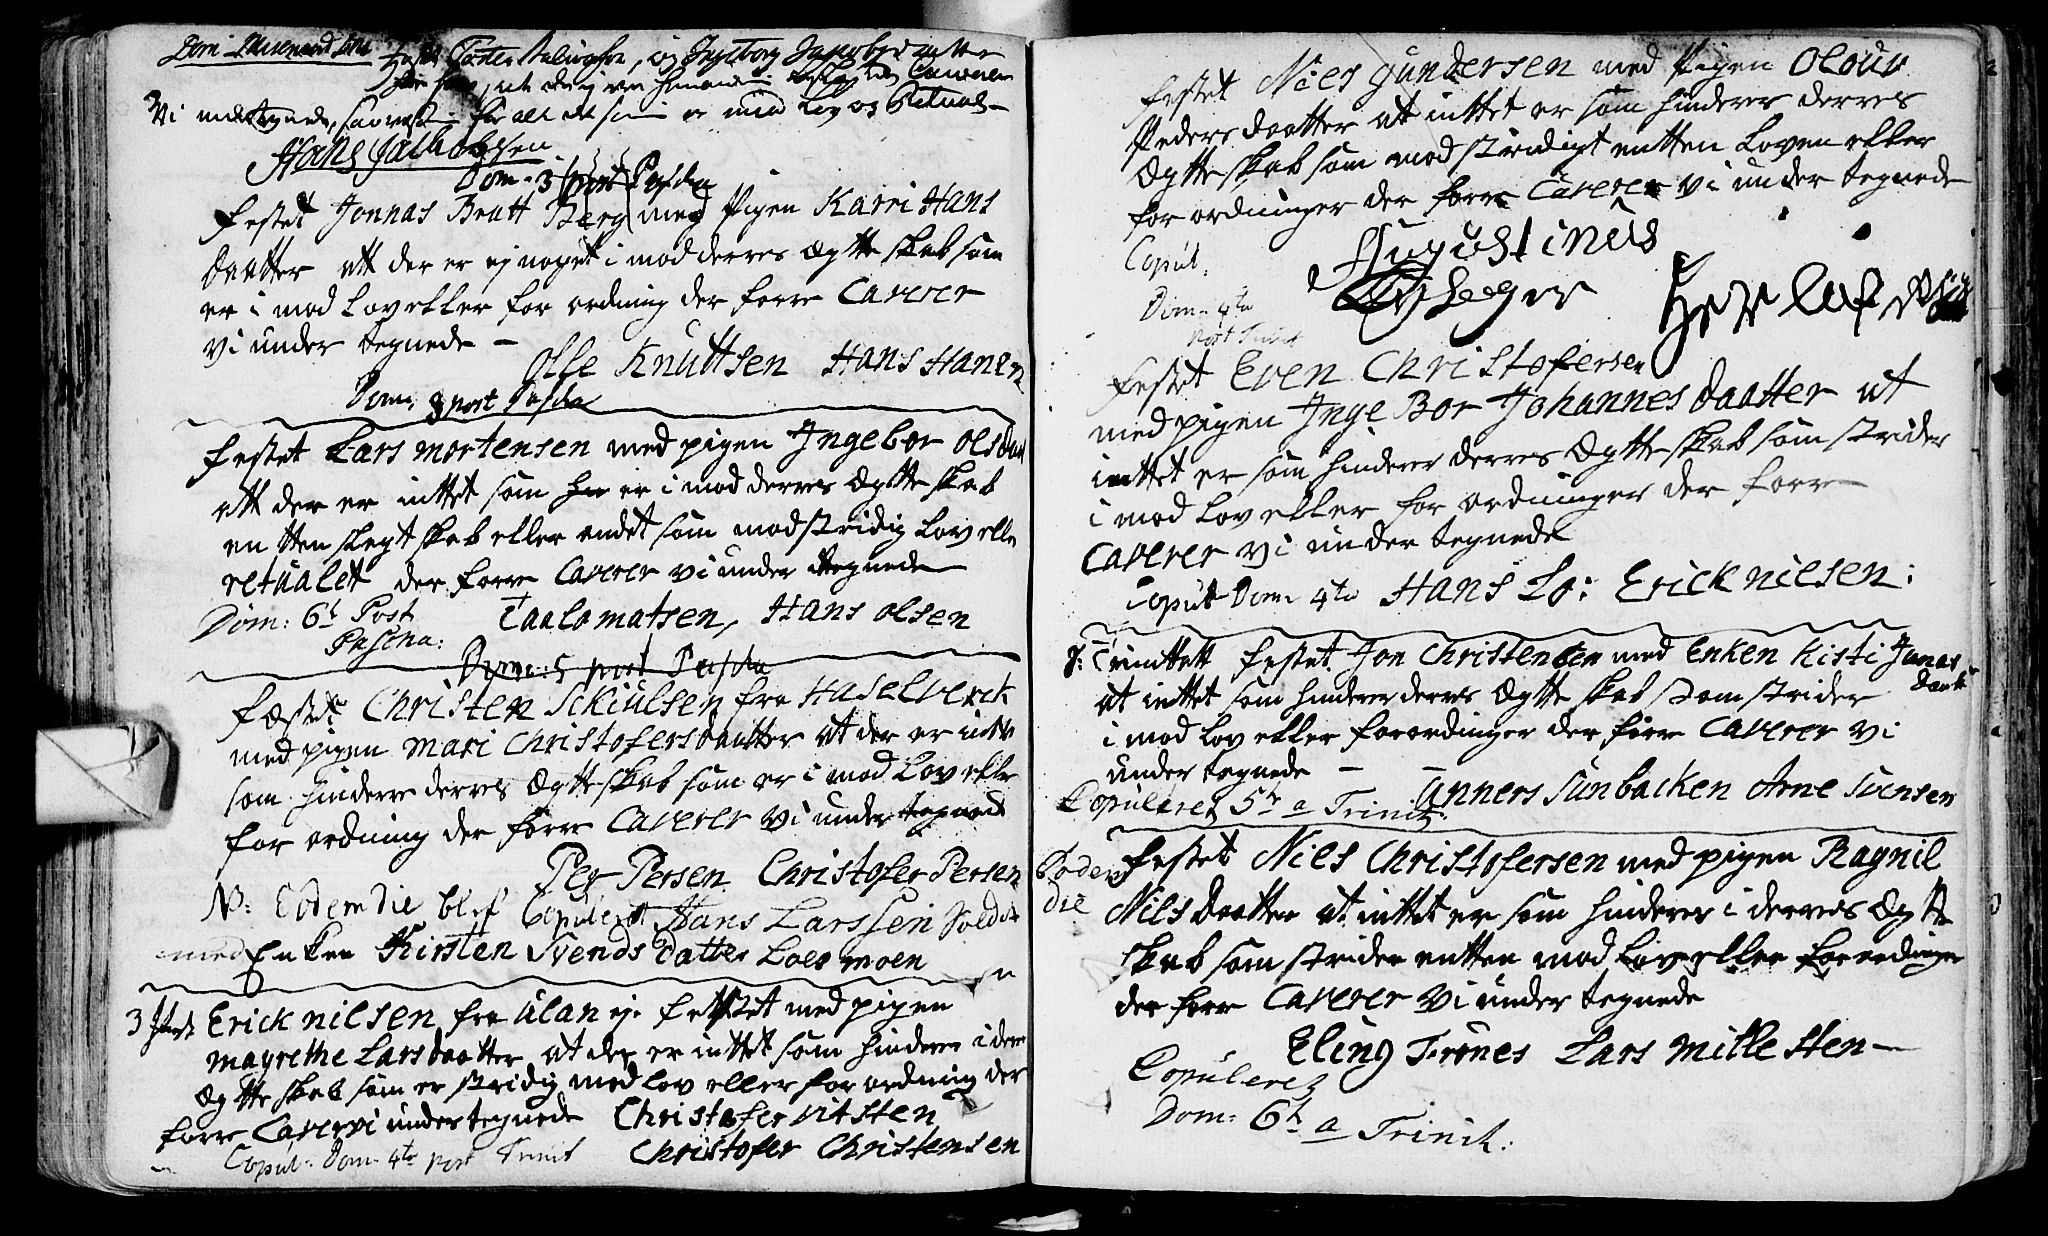 Hans Jacobsen
Dom: 3 post Pascha
Festet Jonnas Bratt Berg med Pigen Karri Hans
daatter att der er ej noget i mod derres Ægtteskab som
er i mod Lov eller for ordning der forre Caverer
vi under tegnede -
Olle Knuttsen Hans Hansen
Dom: 3 post Pascha
Festet Lars mortensen med pigen Ingebor olsdaat
att der er inttet som er i mod derres Ægtteskab
en tten slegt skab eller andet som modstridig Lov eller
retualet der forre Caverer vi under ttegnede
Dom: 6t Post Taalo matsen, Hans olsen
Pascha:
Dom: 5 post Pascha
Fæstet Christen Sckiulsen fra Haselverck
med pigen mari Christofersdaatter at der er intte
som hinderre derres Ægtteskab som er i mod Lov eller
for ordning der forre Caverer vi under tegnede
Per Persen Christofer Persen
N: Eodem die blef Copuleret Hans Larssen Soldat
med Enken Kirsten Svends datter Loesmoen
Erick nilsen fra ulan eje festtet med pigen
magrethe Larsdaatter at der er inttet som hinderer i derres
Ægtteskab som er stridig med Lov eller for ordning der
forre Caver vi under tegnede Christofer vitsten
Copul: Dom: 4te post Trinit Christofer Christensen
Festet Niels gundersen med Pigen Olour
Peders daatter at inttet er som hinderer derres
Ægtteskab som modstridigt entten Loven eller
for ordninger der forre Caverer vi under tegnede
Copul: Augustinus
Dom: 4ta
Post Trinit
Festet Even Christofersen
med pigen Inge Bor Johannes daatter at
inttet er som hinderer derres Ægtteskab som strider
i mod Lov eller for ordninger der forre
Caverer vi under tegnede
Copult Dom: 4te Hans Lo: Erick nilsen:
Trinittatt festet Jon Christensen med Enken Kisti Jonas
at inttet som hinderer derres Ægtteskab som strider daatt
i mod Lov eller forordninger der forre Caverer vi
under tegnede - unners sunbacken Arne svensen
Copulerez 5te a Trinit:
Eodem Festet Nils Christofersen med pigen Ragnil
Die Nilsdaatter at inttet er som hinderer i derres Ægtte
skab som strider entten mod Lov eller forordninger
der forre Caverer vi under tegnede
Eling Trones Lars mille sten -
Copulerez
Dom: 6te a Trinit: